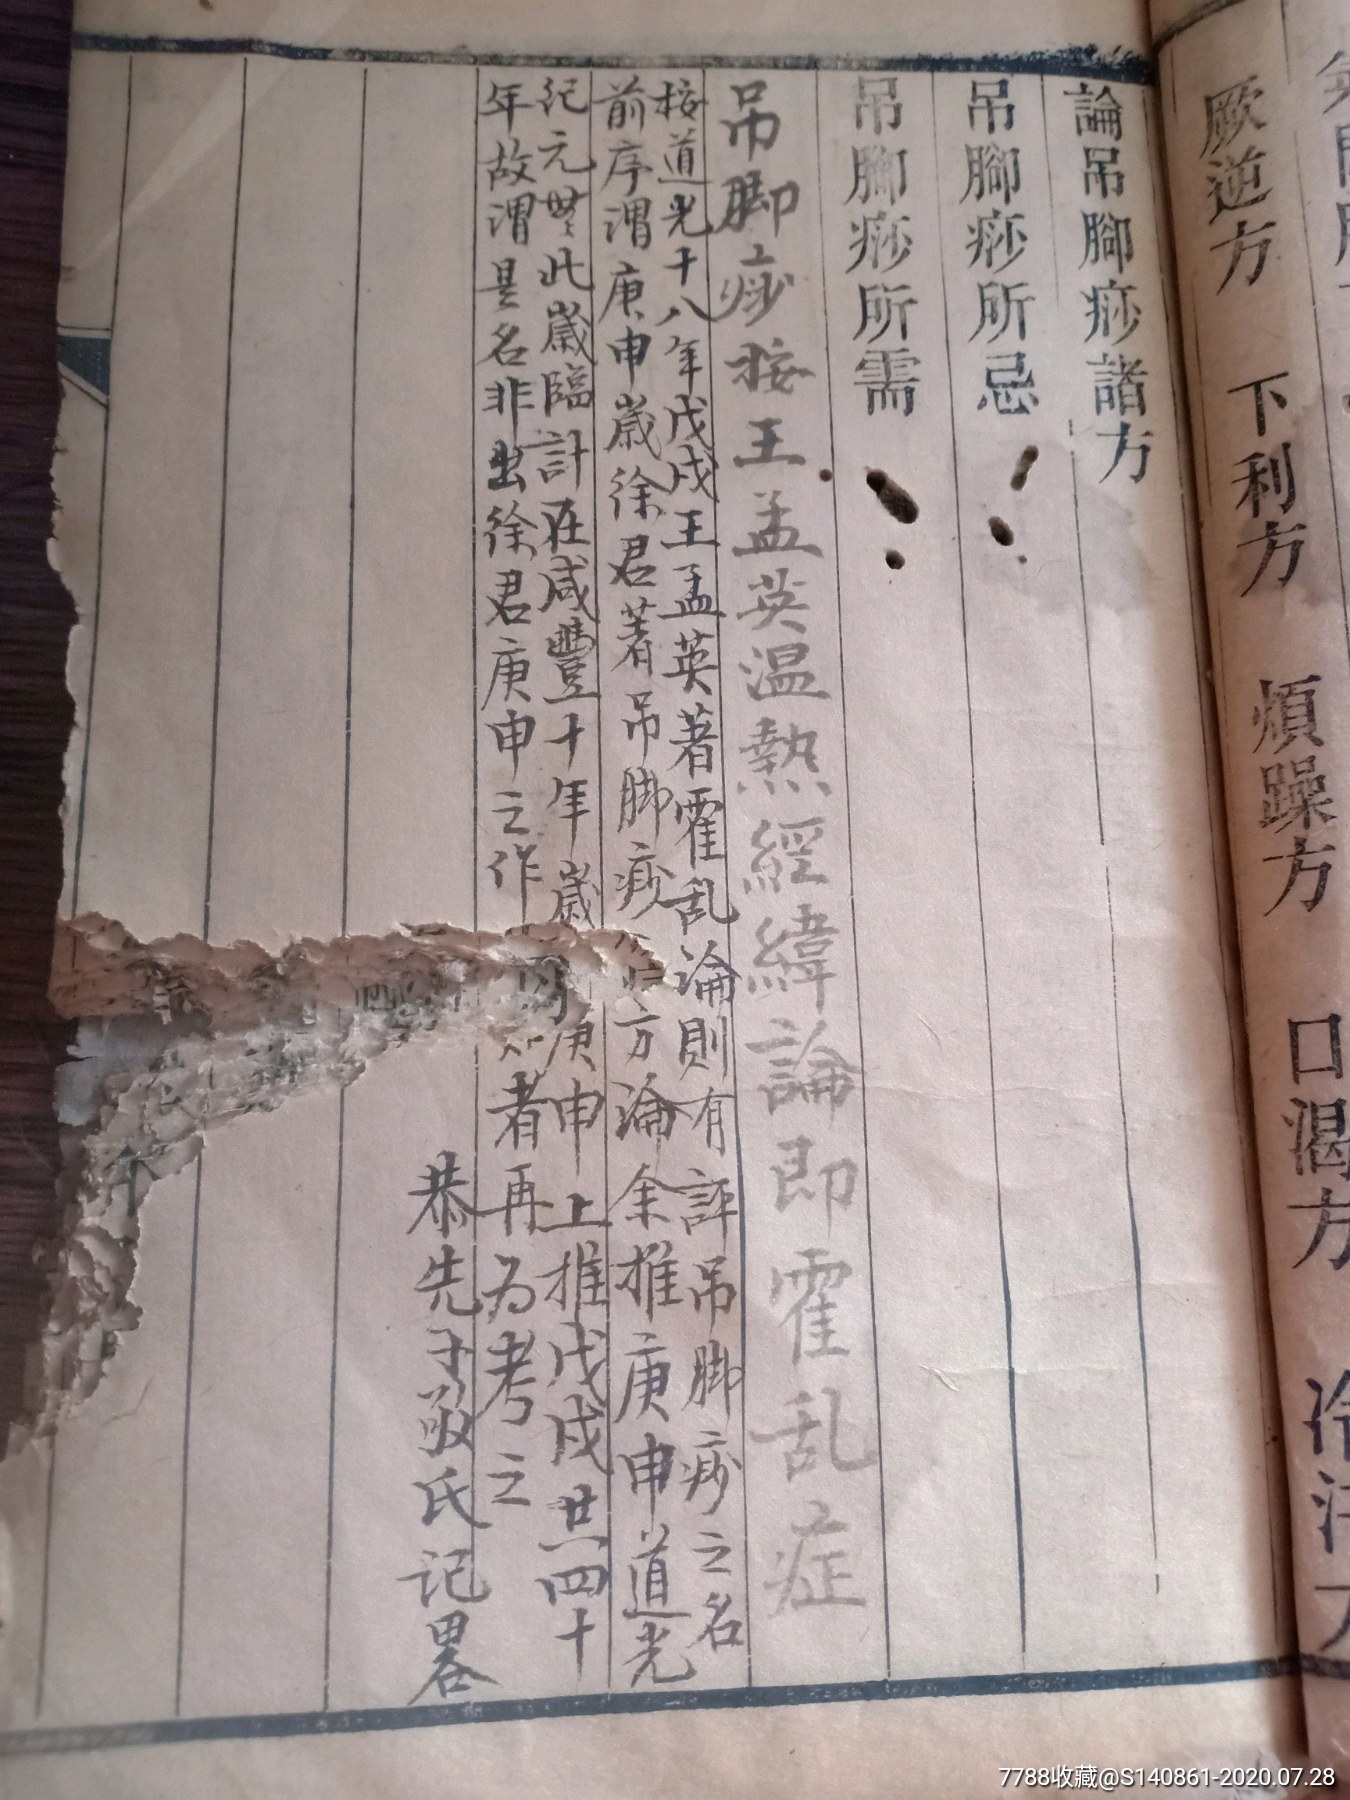 厥逆方　下利方　煩躁方　口渴方
論吊腳痧諸方
吊腳痧所忌
吊腳痧所需
吊脚痧按王孟英温熱經緯論即霍乱症
按道光十八年戊戌王孟英著霍乱論則有評吊脚痧之名
前序谓庚申歲徐君著吊脚痧方論余推庚申道光
紀元無此歲臨計在咸豐十年歲庚申上推戊戌共四十
年故谓是名非出徐君庚申之作者再为考之
恭先子敬氏记畧
7788收藏@S140861-2020.07.28